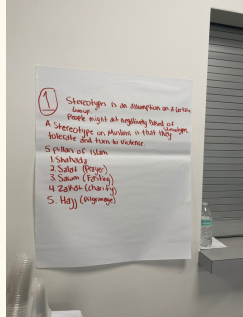 1
Stereotypes is an assumption on a certain
Group.
People might act negatively based of
stereotypes
A Stereotype on Muslims is that they
tolerate and turn to violence.
5 pillars of Islam
1. Shahada
2. Salat (Prayer)
3. Sawm (Fasting)
4. Zakat (charity)
5. Hajj (Pilgrimage)